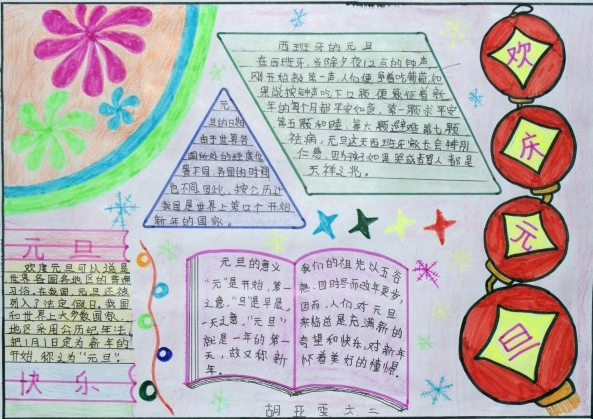 西班牙的元旦
在西班牙,当除夕夜12点的钟声
刚开始敲第一声,人们便争着吃葡萄.如
果能按钟声吃下12颗,便象征着新
年的每个月都平安如意,第一颗求平安
第五颗和睦.第六颗避难第七颗
祛病,元旦这天西班牙家长会特别
仁慈,因为孩子如果哭或者骂人都是
不祥之兆。
元
旦的日期
由于世界各
国所处的经度位
置不同,各国的时间
也不同.因此,按公历计
我国是世界上第12个开始
新年的国家.
元旦
欢度元旦可以说是
世界各国各地区的普遍
习俗.在我国,元旦还被
列入了法定假日,我国
和世界上大多数国家、
地区采用公历纪年法,
把1月1日定为新年的
开始.称之为“元旦”.
快乐
元旦的意义
“元”是开始,第一
之意.“旦”是早晨,
一天之意.“元旦”
就是一年的第一
天,故又称新
年。
我们的祖先以五谷
熟,四时節而成年更步,
因而,人们对元旦
来临总是充满新的
希望和快乐,对新年
怀着美好的憧憬.
欢
庆
元
旦
胡亚雯 六二